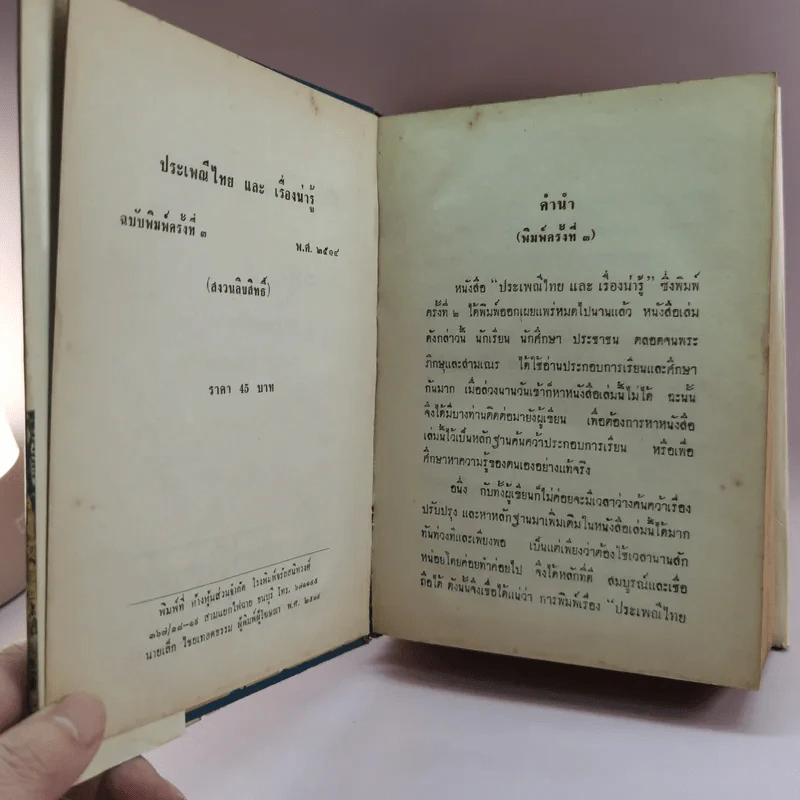 ประเพณีไทย และ เรื่องน่ารู้
ฉบับพิมพ์ครั้งที่ ๓
พ.ศ. ๒๕๑๔
(สงวนลิขสิทธิ์)
ราคา 45 บาท
พิมพ์ที่ ห้างหุ้นส่วนจำกัด โรงพิมพ์จรัลสนิทวงศ์
๓๖๗/๑๘-๑๙ สามแยกไฟฉาย ธนบุรี โทร.
นายเล็ก ไชยเทอดธรรม ผู้พิมพ์ผู้โฆษณา พ.ศ. ๒๕๑๔
คำนำ
(พิมพ์ครั้งที่ ๓)
หนังสือ "ประเพณีไทย และ เรื่องน่ารู้" ซึ่งพิมพ์
ครั้งที่ ๒ ได้พิมพ์ออกเผยแพร่หมดไปนานแล้ว หนังสือเล่ม
ดังกล่าวนั้น นักเรียน นักศึกษา ประชาชน ตลอดจนพระ
ภิกษุและสามเณร ได้ใช้อ่านประกอบการเรียนและศึกษา
กันมาก เมื่อล่วงนานวันเข้าก็หาหนังสือเล่มนี้ไม่ได้ ฉะนั้น
จึงได้มีบางท่านติดต่อมายังผู้เขียน เพื่อต้องการหาหนังสือ
เล่มนี้ไว้เป็นหลักฐานค้นคว้าประกอบการเรียน หรือเพื่อ
ศึกษาหาความรู้ของตนเองอย่างแท้จริง
อนึ่ง กับทั้งผู้เขียนก็ไม่ค่อยจะมีเวลาว่างค้นคว้าเรื่อง
ปรับปรุง และหาหลักฐานมาเพิ่มเติมในหนังสือเล่มนี้ได้มาก
ทันท่วงทีและเพียงพอ เป็นแต่เพียงว่าต้องใช้เวลานานสัก
หน่อยโดยค่อยทำค่อยไป จึงได้หลักที่ดี สมบูรณ์และเชื่อ
ถือได้ ดังนั้นจึงเชื่อได้แน่ว่า การพิมพ์เรื่อง "ประเพณีไทย